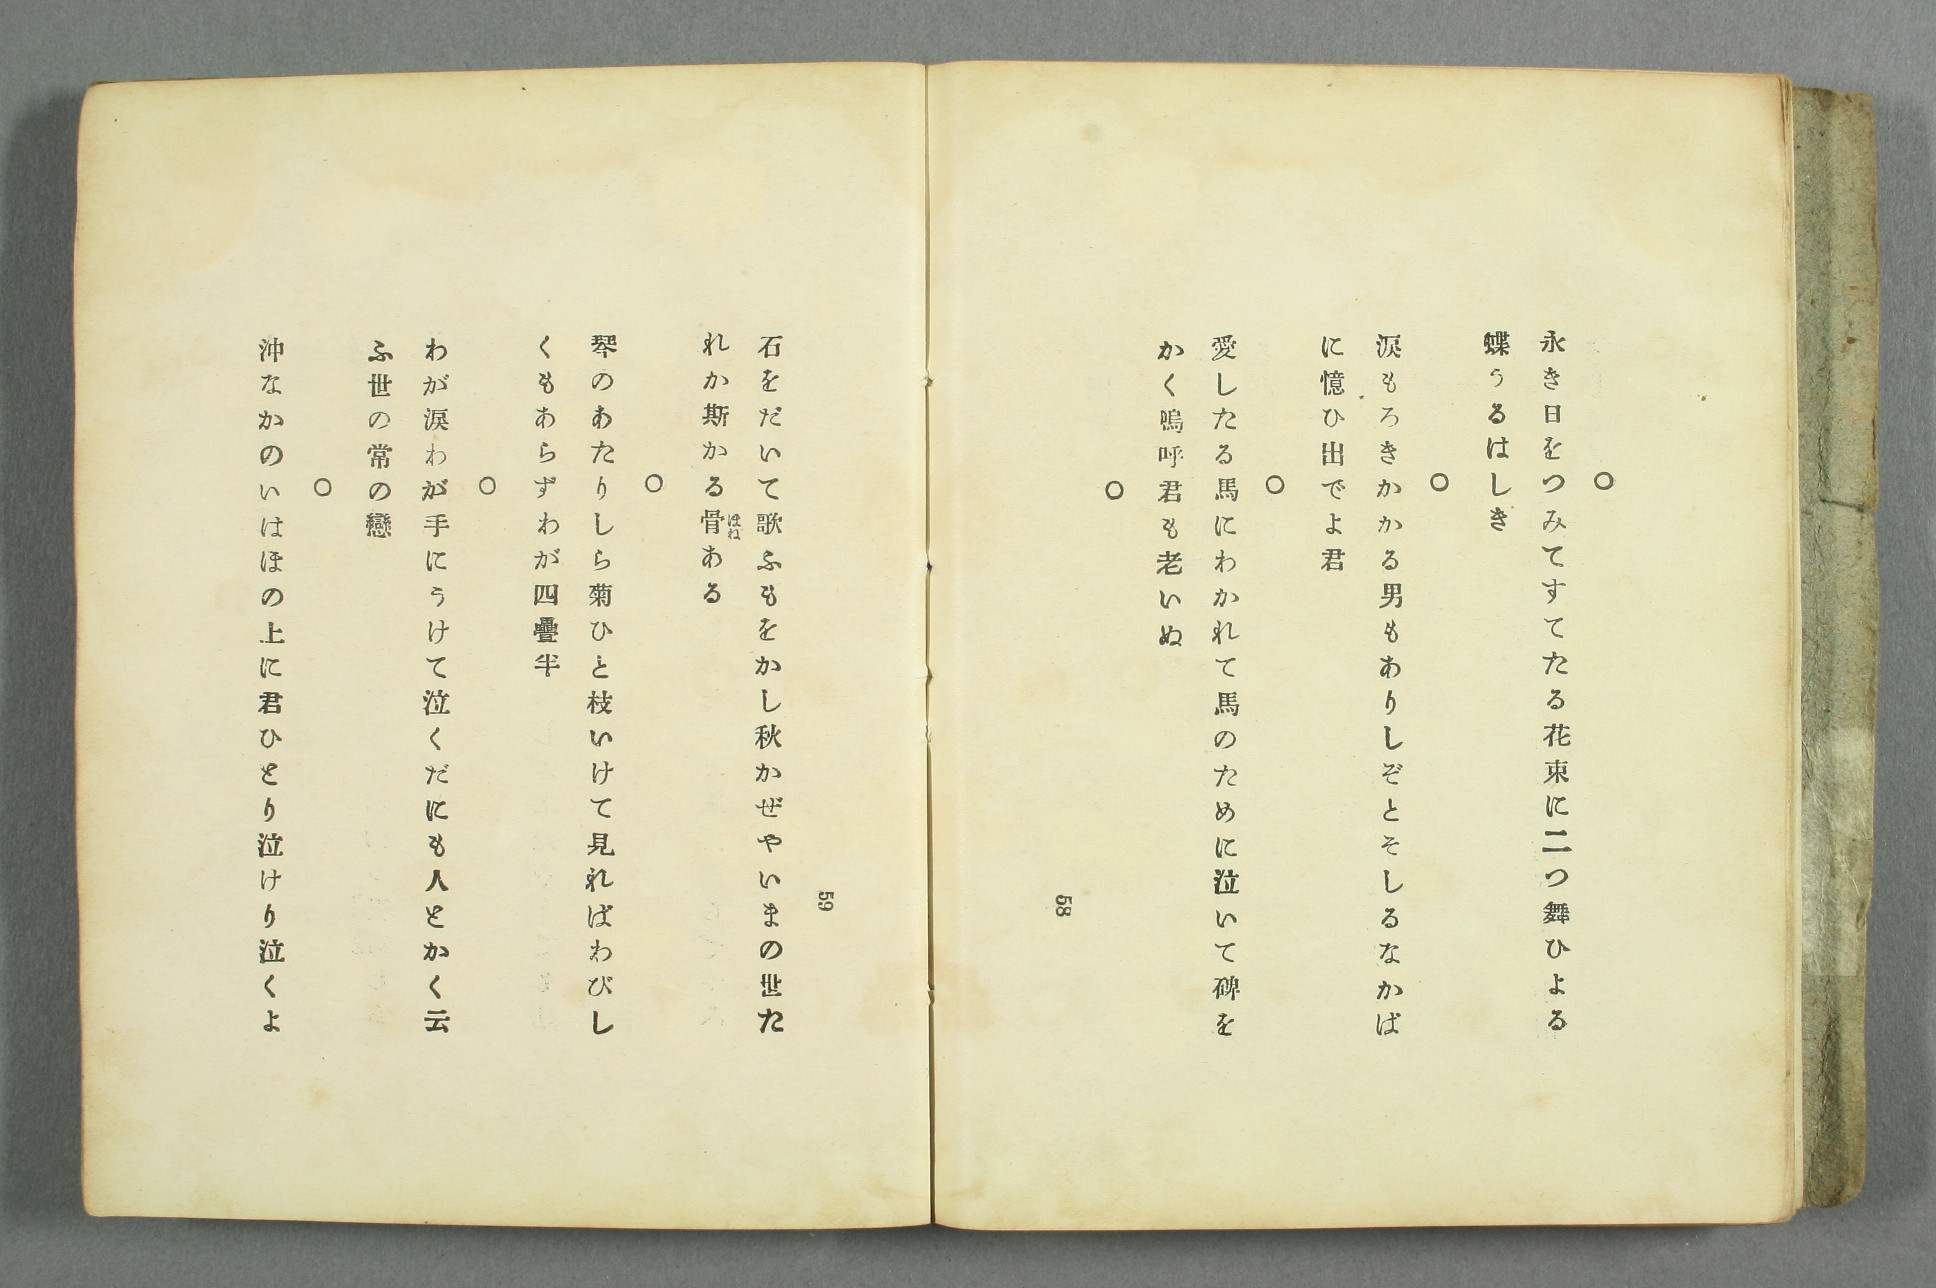 ○
永き日をつみてすてたる花束に二つ舞ひよる
蝶うるはしき
○
涙もろきかかる男もありしぞとそしるなかば
に憶ひ出でよ君
○
愛したる馬にわかれて馬のために泣いて碑を
かく嗚呼君も老いぬ
○
58
59
石をだいて歌ふもをかし秋かぜやいまの世た
れか斯かる骨ある
ほね
○
琴のあたりしら菊ひと枝いけて見ればわびし
くもあらずわが四疊半
○
わが涙わが手にうけて泣くだにも人とかく云
ふ世の常の戀
○
沖なかのいはほの上に君ひとり泣けり泣くよ